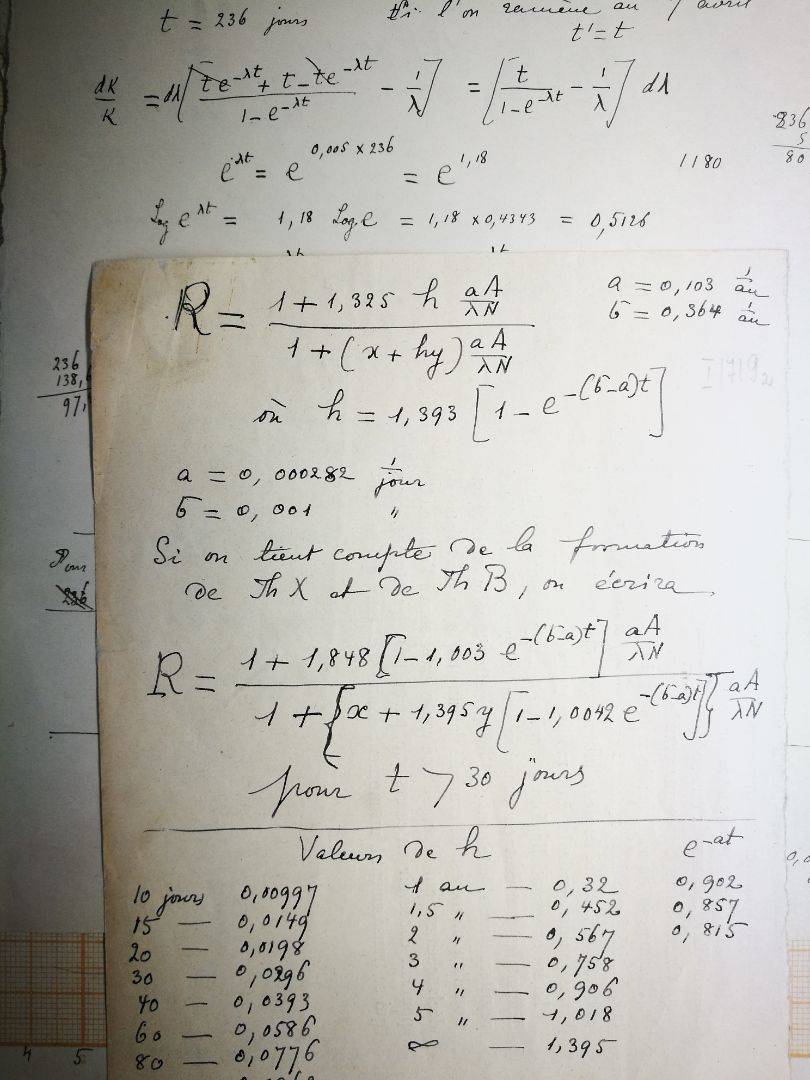 t = 236 jours
Si l'on ramène au 7 avril
t' = t
dK/K = dλ [ (te^-λt + t - te^-λt)/(1 - e^-λt) - 1/λ ] = [ t/(1 - e^-λt) - 1/λ ] dλ
236
5
80
e^λt = e^0,005 x 236 = e^1,18
1180
Log e^λt = 1,18 Log e = 1,18 x 0,4343 = 0,5126
R = (1 + 1,325 h aA/λN)/(1 + (x + hy) aA/λN)
a = 0,103 1/an
б = 0,364 1/an
236
138,
97,
où h = 1,393 [1 - e^-(б-a)t]
a = 0,000282 1/jour
б = 0,001 "
Si on tient compte de la formation
de Th X et de Th B, on écrira
Pour
236
R = (1 + 1,848 [1 - 1,003 e^-(б-a)t] aA/λN)/(1 + {x + 1,395 y [1 - 1,0042 e^-(б-a)t]} aA/λN)
pour t > 30 jours
Valeurs de h e^-at
10 jours 0,00997 1 an — 0,32 0,902
15 — 0,0149 1,5 " — 0,452 0,857
20 — 0,0198 2 " — 0,567 0,815
30 — 0,0296 3 " — 0,758
40 — 0,0393 4 " — 0,906
60 — 0,0586 5 " — 1,018
80 — 0,0776 ∞ — 1,395
4 5